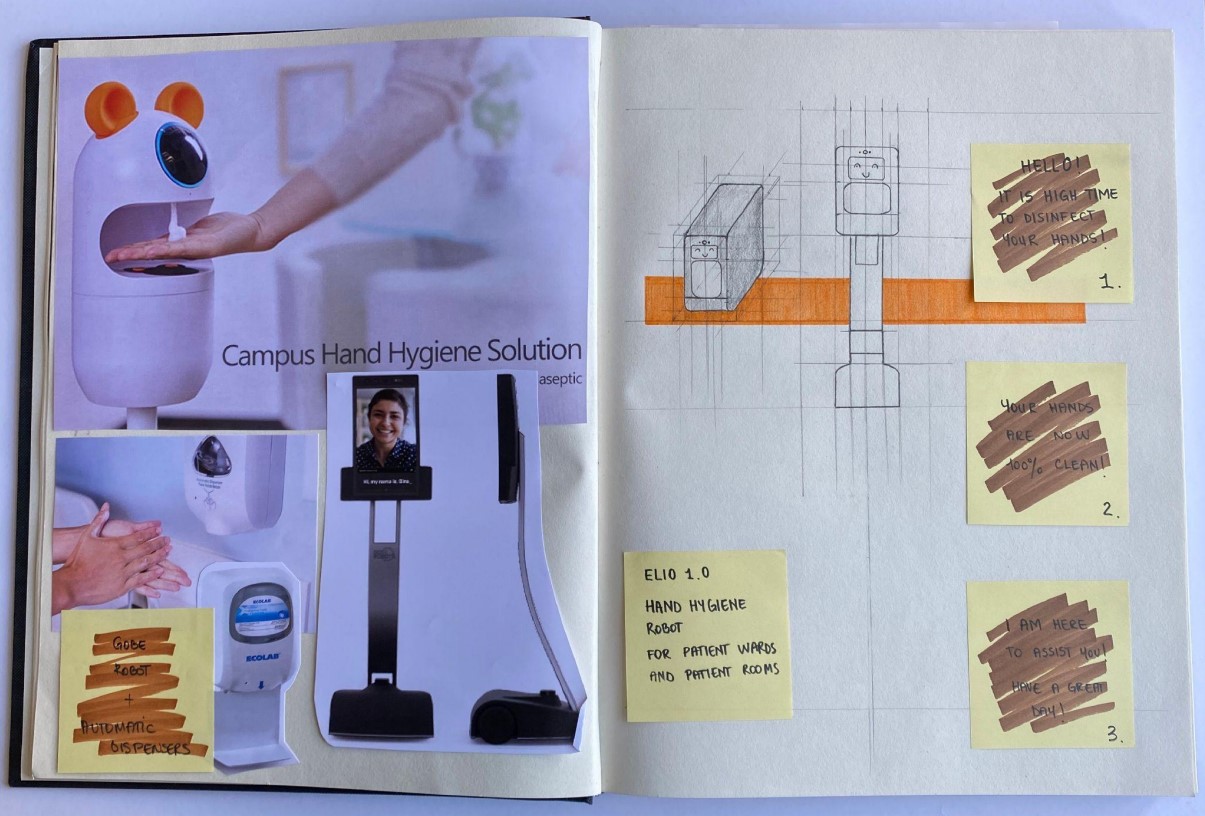 Campus Hand Hygiene Solution
aseptic
Hi, my name is
ECOLAB
ECOLAB
GOBE
ROBOT
+
AUTOMATIC
DISPENSERS
ELIO 1.0
HAND HYGIENE
ROBOT
FOR PATIENT WARDS
AND PATIENT ROOMS
HELLO!
IT IS HIGH TIME
TO DISINFECT
YOUR HANDS!
1.
YOUR HANDS
ARE NOW
100% CLEAN!
2.
I AM HERE
TO ASSIST YOU!
HAVE A GREAT
DAY!
3.